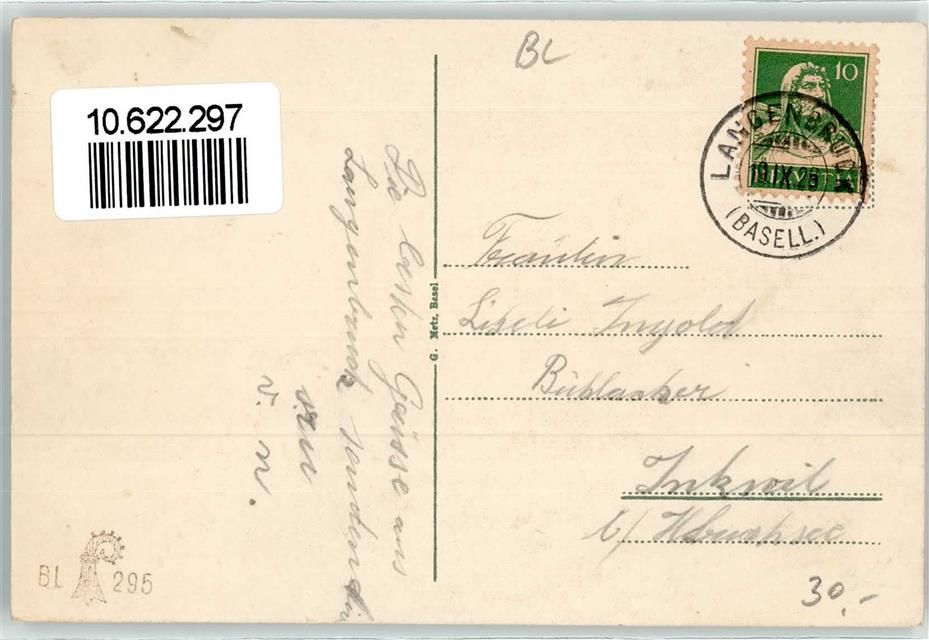 10.622.297
BL
10
HELVETIA
LANGENBRUCK
19.IX.26
(BASELL.)
Die besten Grüsse aus
Langenbruck sendend
v. n.
G. Metz, Basel
Fräulein
Liseli Ingold
Bühlacker
Inkwil
b/ H
BL 295
30.-